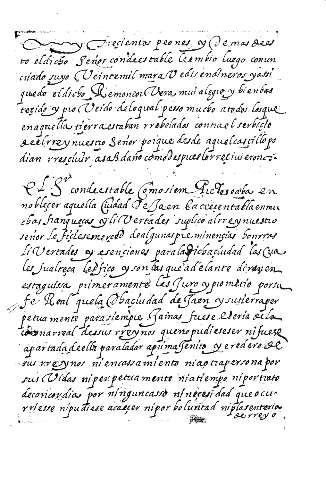 y trecientos peones, y De mas de es
to el dicho Señor condestable le embio luego con un
criado suyo Veinte mil mara Vedis en dineros y assi
quedo el dicho Remon cor Vera, mui alegre y bien bas
tezido y pro Veido de lo qual peso mucho a todos los que
en aquella tierra estaban rrebelados contra el serbicio
de el rrey nuestro Señor porque desde aquel castillo po
dian rresciuir asaz daño como despues lo rrecivieron
El Sor condestable Como siempre deseaba en
noblecer aquella Ciudad de Jaen e acrecentalla en mu
chas franquezas y li Vertades suplico al rrey nuestro
señor le ficiese merced de algunas preminencias honrras
li Vertades y esenciones para la dicha ciudad las qua
les su alteza le fizo y son las que adelante diran en
esta guisa primeramente les Juro y prometio por su
fe Real que la dicha ciudad de Jaen y su tierra per
petuamente para siempre Jamas fuese e seria de la
corona rreal de sus rreynos que no pudiese ser ni fuese
apartada de ella para la dar a primo genito y eredero de
sus rreynos ni en cassamiento ni a otra persona por
sus Vidas ni perpetuamente ni a tiempo ni por trato
de concordia por ningun casso ni necesidad que ocu
rriesse ni pudiese acaecer ni por boluntad ni plasenteria
de el rrey o